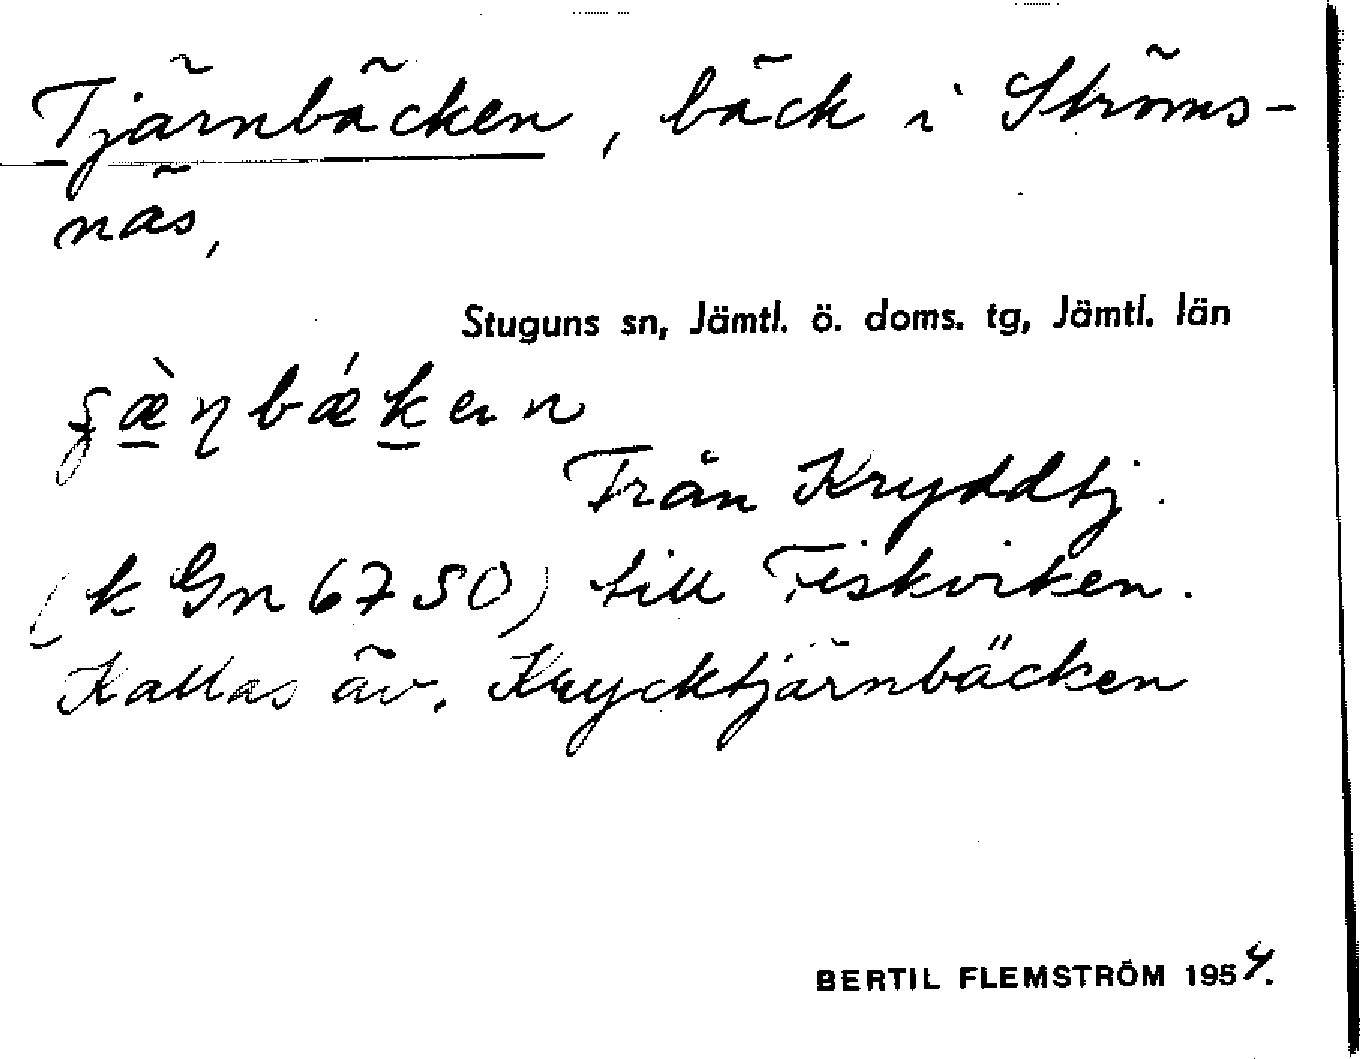 Tjärnbäcken, bäck i Ströms-
näs,
Stuguns sn, Jämtl. ö. doms. tg, Jämtl. län
Från Kryddtj.
(k Gn 6750) till Fiskviken.
Kallas äv. Krycktjärnbäcken
BERTIL FLEMSTRÖM 1954.